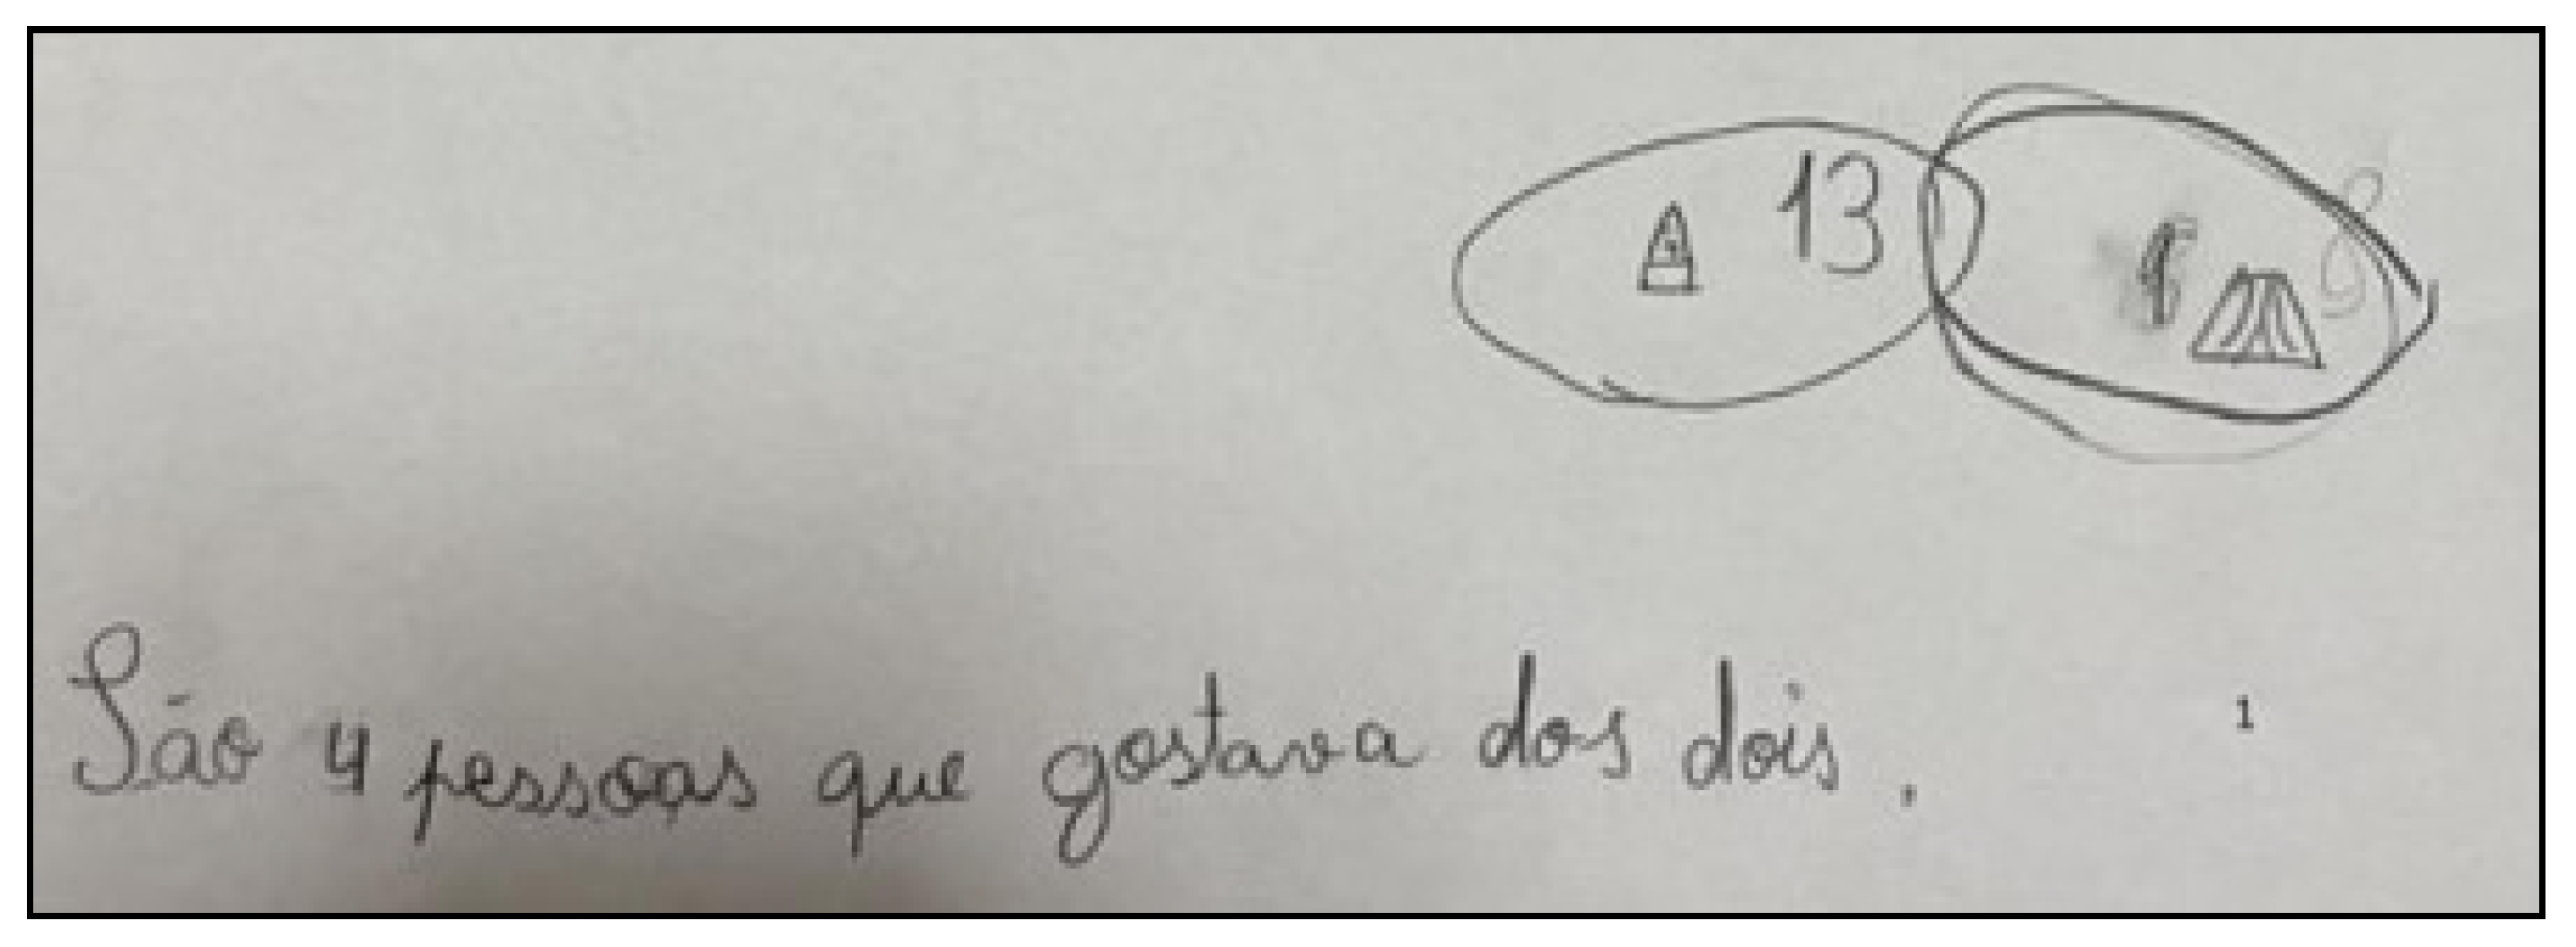 13
8
São 4 pessoas que gostava dos dois.
1